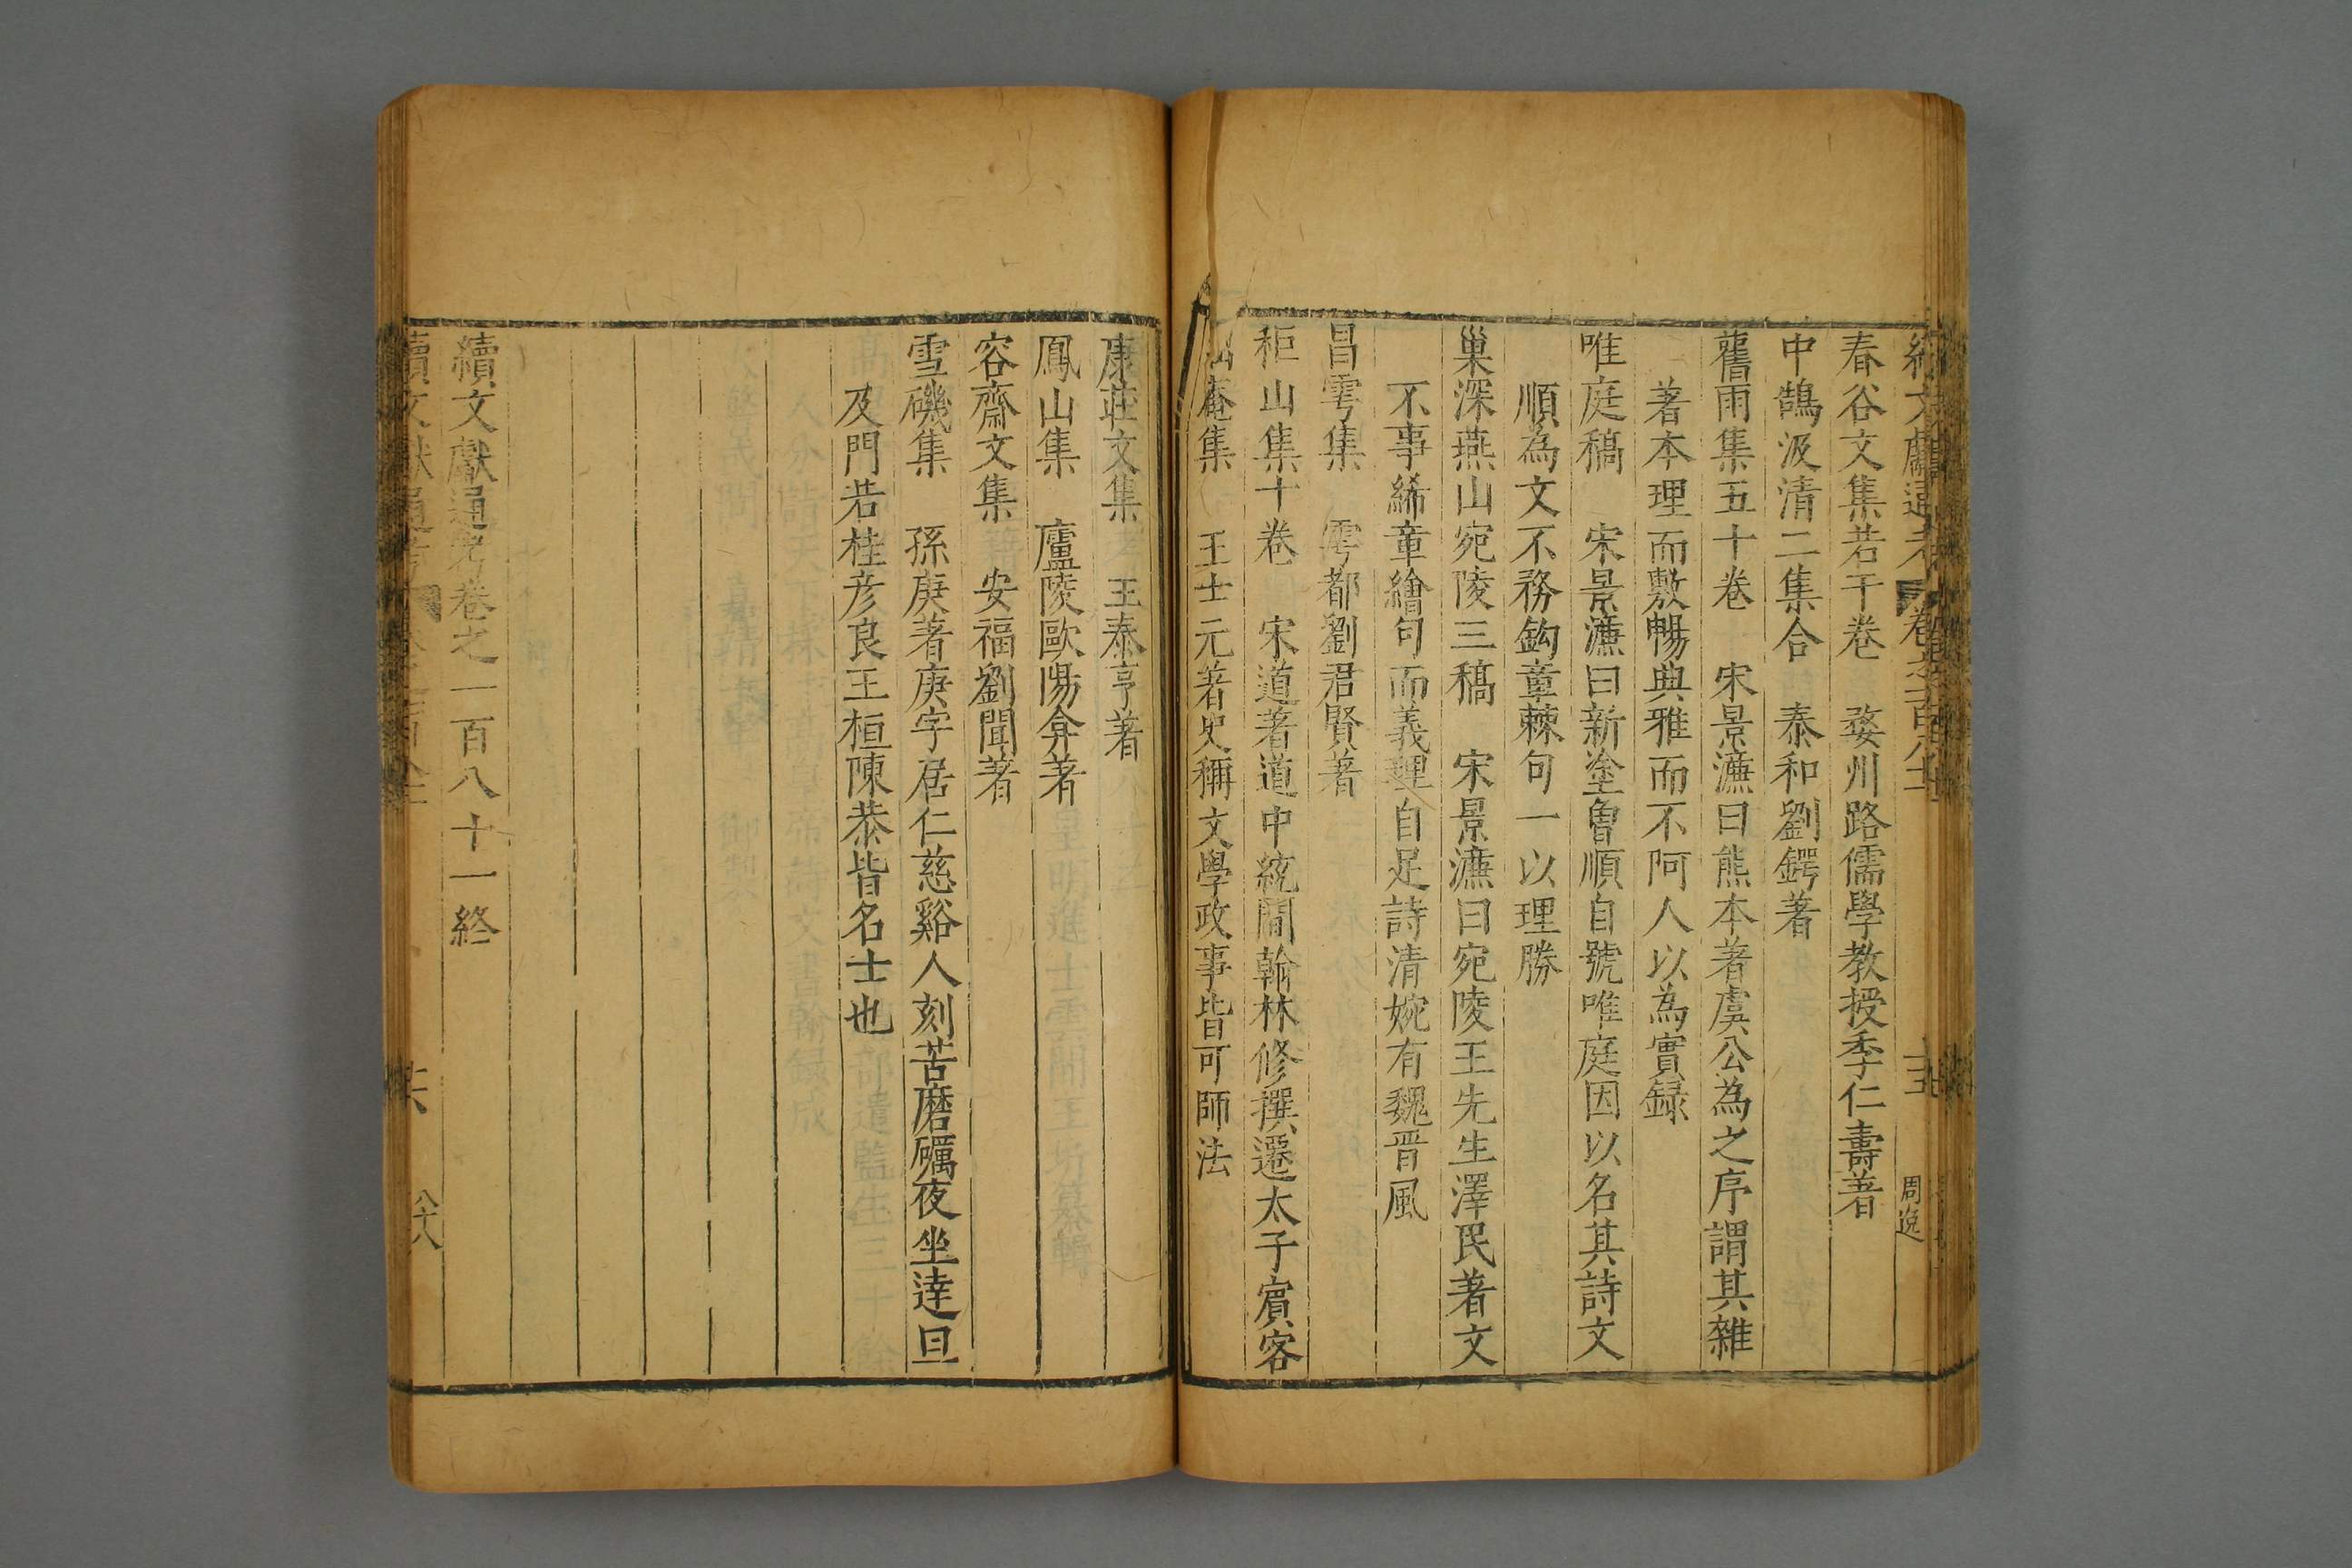 春谷文集若干卷　婺州路儒學教授季仁壽著
中鵠汲清二集合　泰和劉鍔著
舊雨集五十卷　宋景濂曰熊本著虞公為之序謂其雜
著本理而敷暢典雅而不阿人以為實録
唯庭稿　宋景濂曰新塗魯順自號唯庭因以名其詩文
順為文不務鈎章棘句一以理勝
巢深燕山宛陵三稿　宋景濂曰宛陵王先生澤民著文
不事絺章繪句而義理自足詩清婉有魏晋風
昌雩集　雩都劉君賢著
秬山集十卷　宋道著道中統間翰林修撰遷太子賓客
庵集　王士元著史稱文學政事皆可師法
周逸
康莊文集　王泰亨著
鳳山集　廬陵歐陽弇著
容齋文集　安福劉聞著
雪磯集　孫庚著庚字居仁慈谿人刻苦磨礪夜坐達旦
及門若桂彦良王桓陳恭皆名士也
續文獻通考卷之一百八十一終